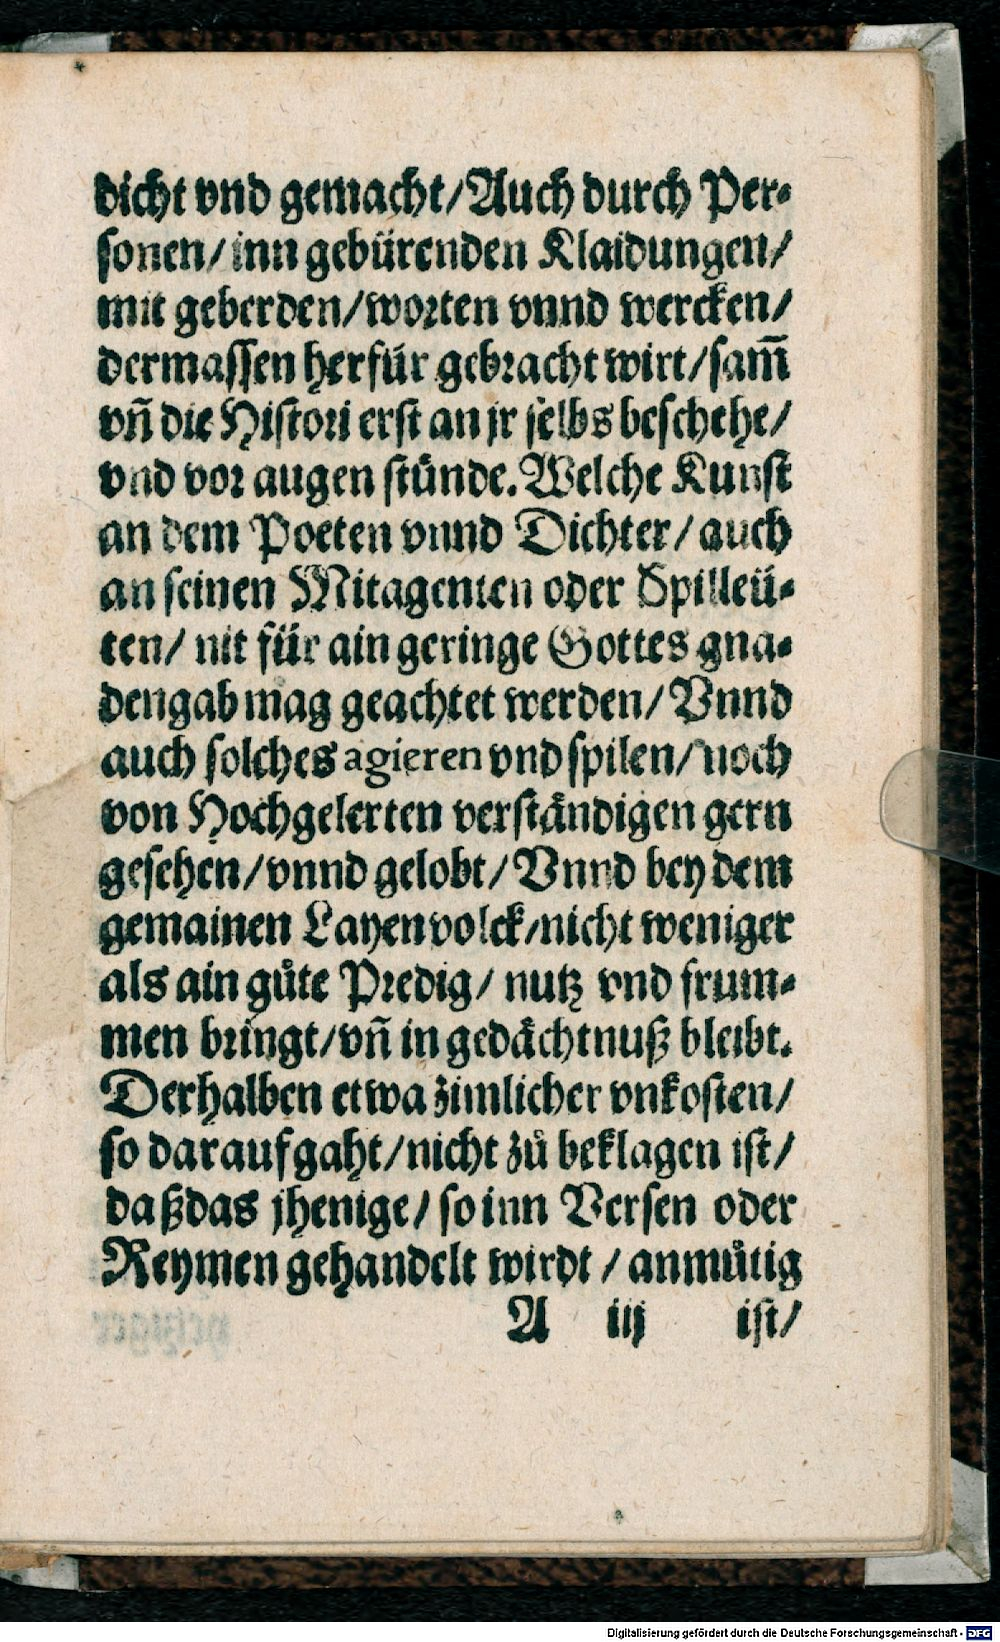 dicht vnd gemacht/Auch durch Per-
sonen/inn gebürenden Klaidungen/
mit geberden/worten vnnd wercken/
dermassen herfür gebracht wirt/sam̃
vñ die Histori erst an jr selbs beschehe/
vnd vor augen stünde. Welche Kunst
an dem Poeten vnnd Dichter/ auch
an seinen Mitagenten oder Spilleü-
ten/ nit für ain geringe Gottes gna-
dengab mag geachtet werden/ Vnnd
auch solches agieren vnd spilen/ noch
von Hochgelerten verständigen gern
gesehen/vnnd gelobt/ Vnnd bey dem
gemainen Layenvolck/nicht weniger
als ain gůte Predig/ nutz vnd frum-
men bringt/vñ in gedächtnuß bleibt.
Derhalben etwa zimlicher vnkosten/
so darauf gaht/nicht zů beklagen ist/
daß das jhenige/ so inn Versen oder
Reymen gehandelt wirdt / anmůtig
A iij ist/
Digitalisierung gefördert durch die Deutsche Forschungsgemeinschaft - DFG